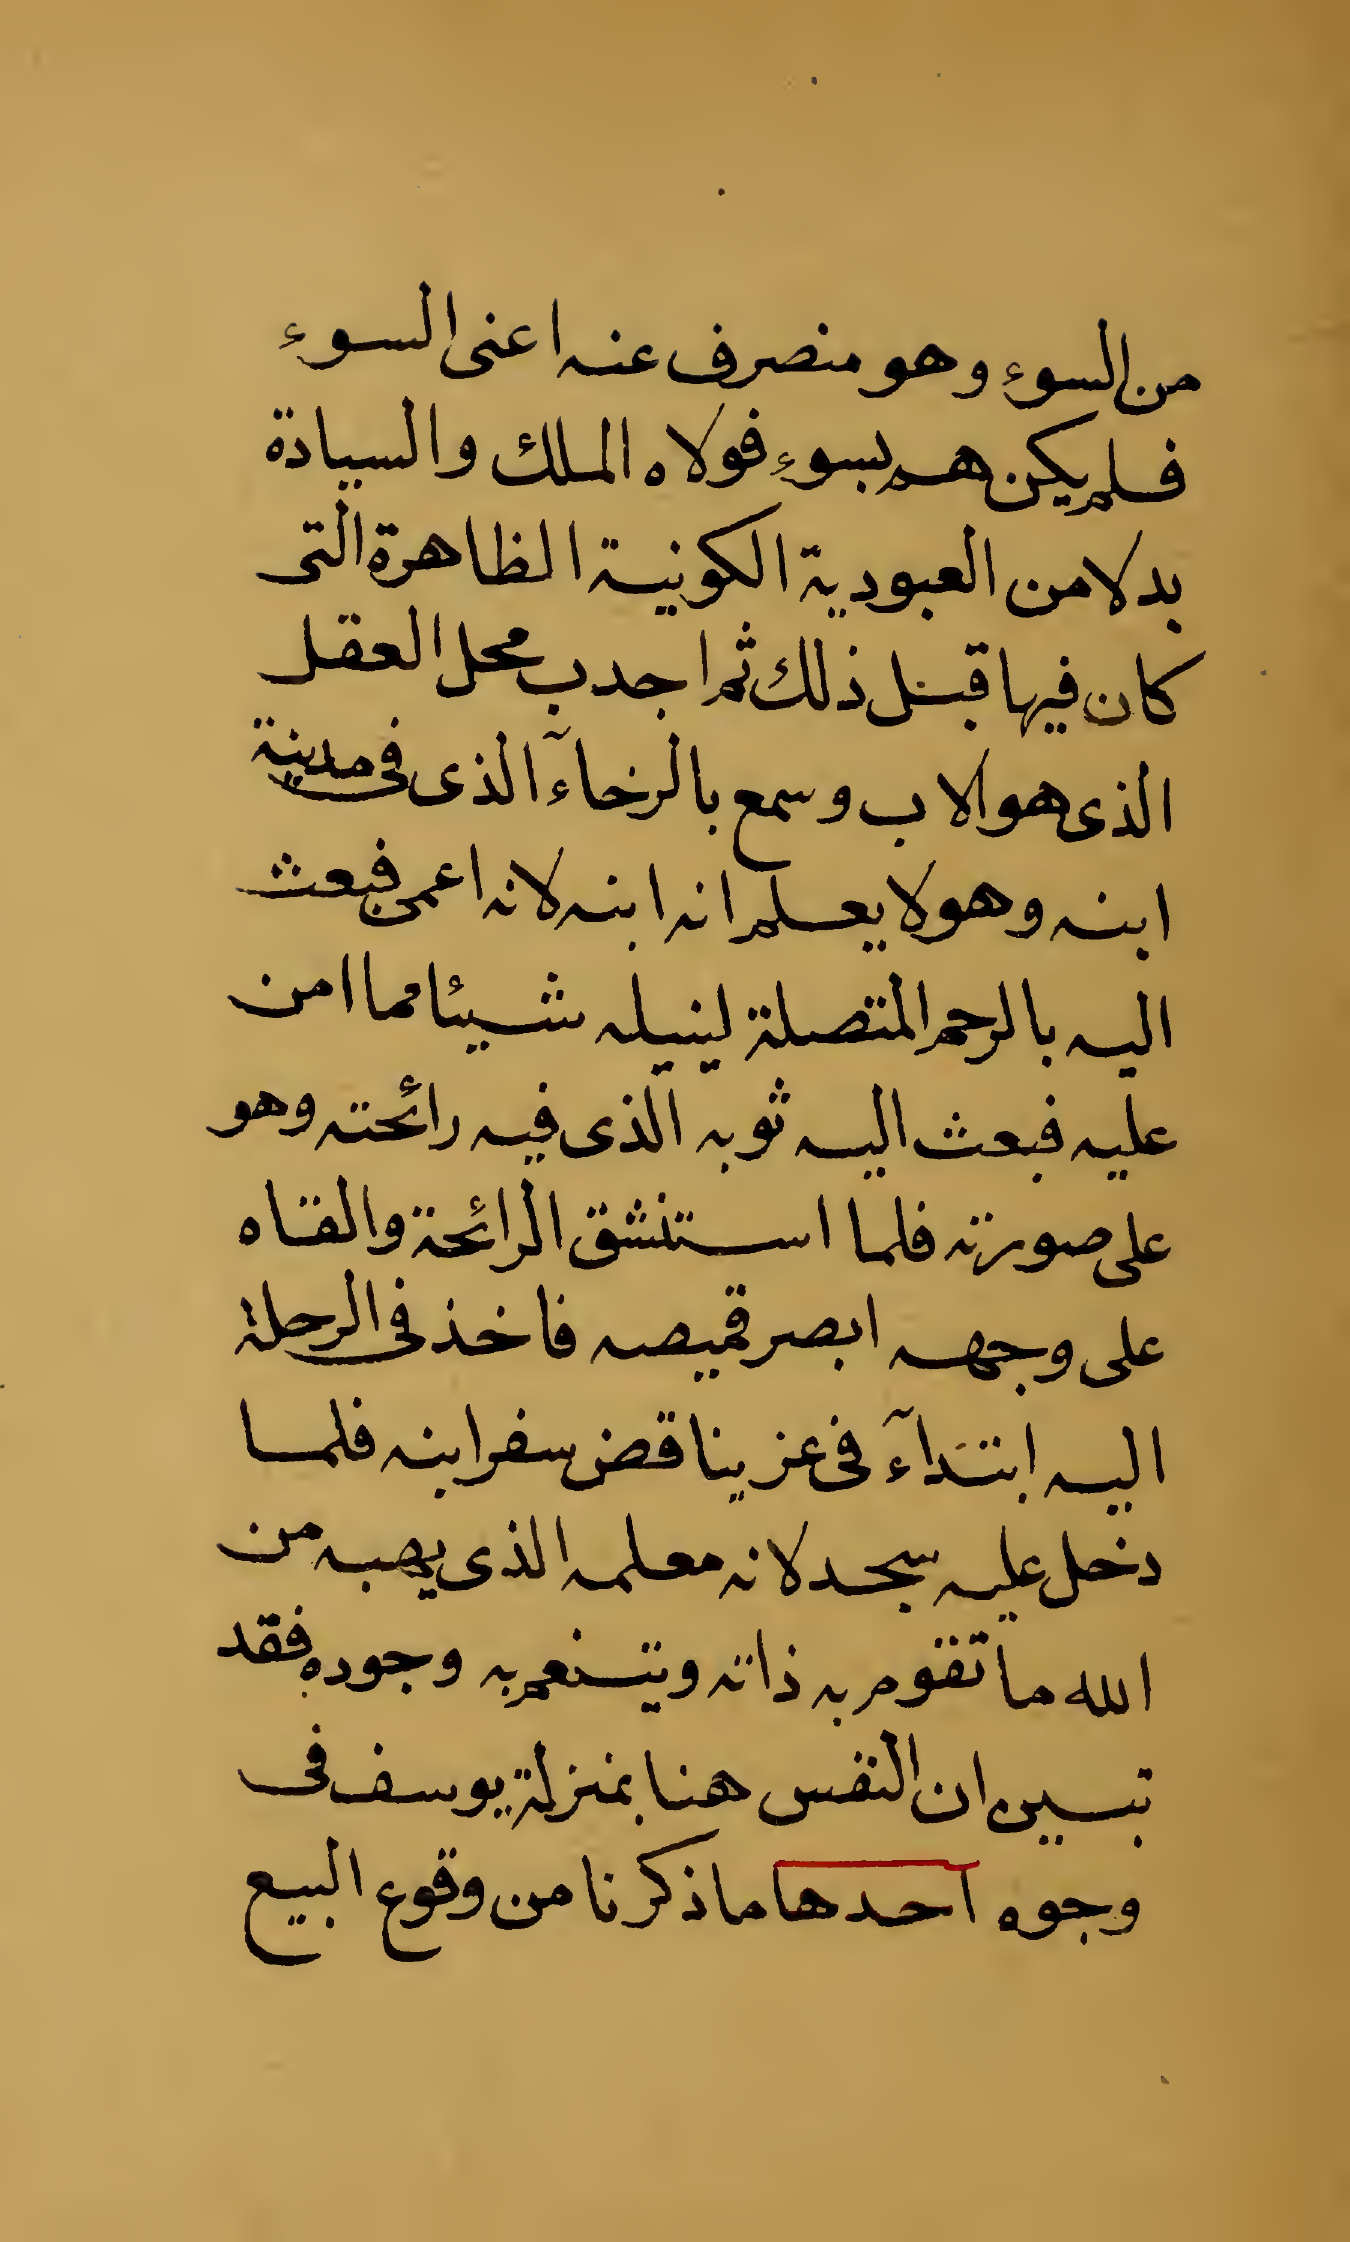 من السوء وهو منصرف عنه اعنى السوء
فلم يكن هم بسوء فولاه الملك والسيادة
بدلا من العبودية الكونية الظاهرة التى
كان فيها قبل ذلك ثم اجدب محل العقل
الذى هو الاب وسمع بالرخآء الذى فى مدينة
ابنه وهو لا يعلم انه ابنه لانه اعمى فبعث
اليه بالرحم المتصلة لينيله شيئا مما امن
عليه فبعث اليه ثوبه الذى فيه رائحته وهو
على صورته فلما استنشق الرائحة والقاه
على وجهه ابصر قميصه فاخذ فى الرحلة
اليه ابتدآء فى عز يناقض سفر ابنه فلما
دخل عليه سجد لانه معلمه الذى يهبه من
الله ما تقوم به ذاته ويتنعم به وجوده فقد
تبين ان النفس هنا بمنزلة يوسف فى
وجوه احدها ما ذكرنا من وقوع البيع